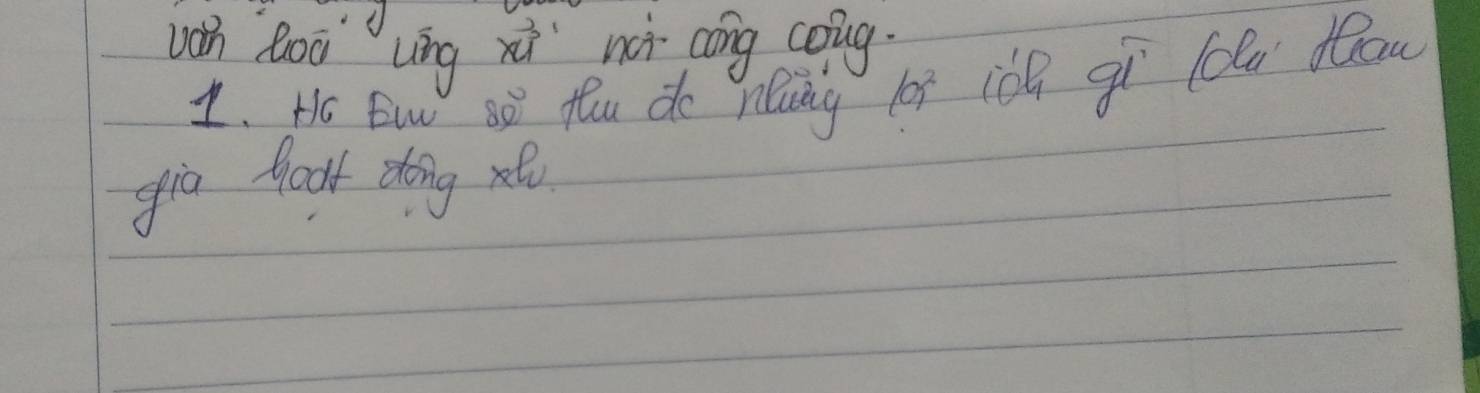 văn hoá ứng xử nơi công cộng.
1. Hà Em sẽ thu dc những lợi ích gì khi tham
gia hoạt động xh.